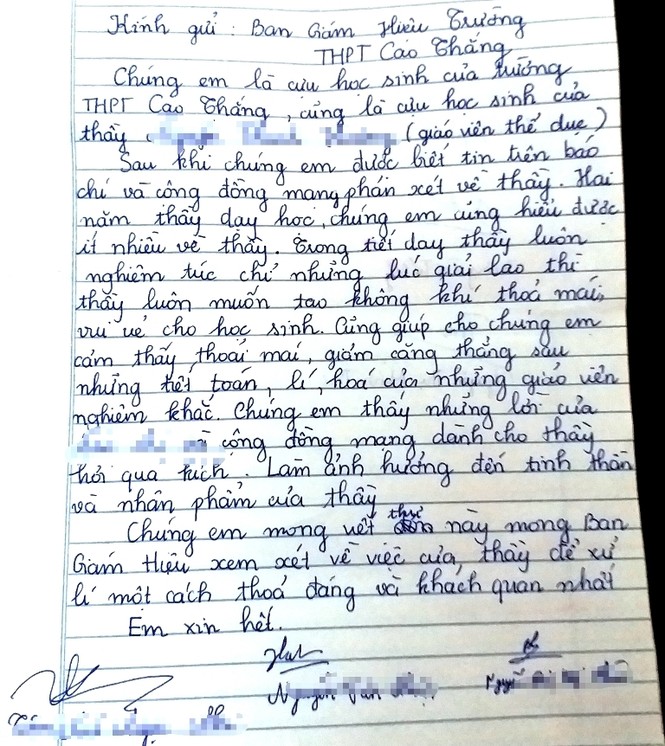 Kính gửi : Ban Giám Hiệu Trường
THPT Cao Thắng
Chúng em là cựu học sinh của trường
THPT Cao Thắng , cũng là cựu học sinh của
thầy (giáo viên thể dục)
Sau khi chúng em được biết tin trên báo
chí và công đồng mạng phán xét về thầy. Hai
năm thầy dạy học, chúng em cũng hiểu được
ít nhiều về thầy. Trong tiết dạy thầy luôn
nghiêm túc chỉ những lúc giải lao thì
thầy luôn muốn tạo không khí thoả mái,
vui vẻ cho học sinh. Cũng giúp cho chúng em
cảm thấy thoải mái, giảm căng thẳng sau
những tiết toán, lí, hoá của những giáo viên
nghiêm khắc. Chúng em thấy những lời của
và công đồng mạng dành cho thầy
hơi quá khích. Làm ảnh hưởng đến tinh thần
và nhân phẩm của thầy
Chúng em mong viết thư này mong Ban
Giám Hiệu xem xét về việc của, thầy để xử
lí một cách thoả đáng và khách quan nhất
Em xin hết.
Nguyễn